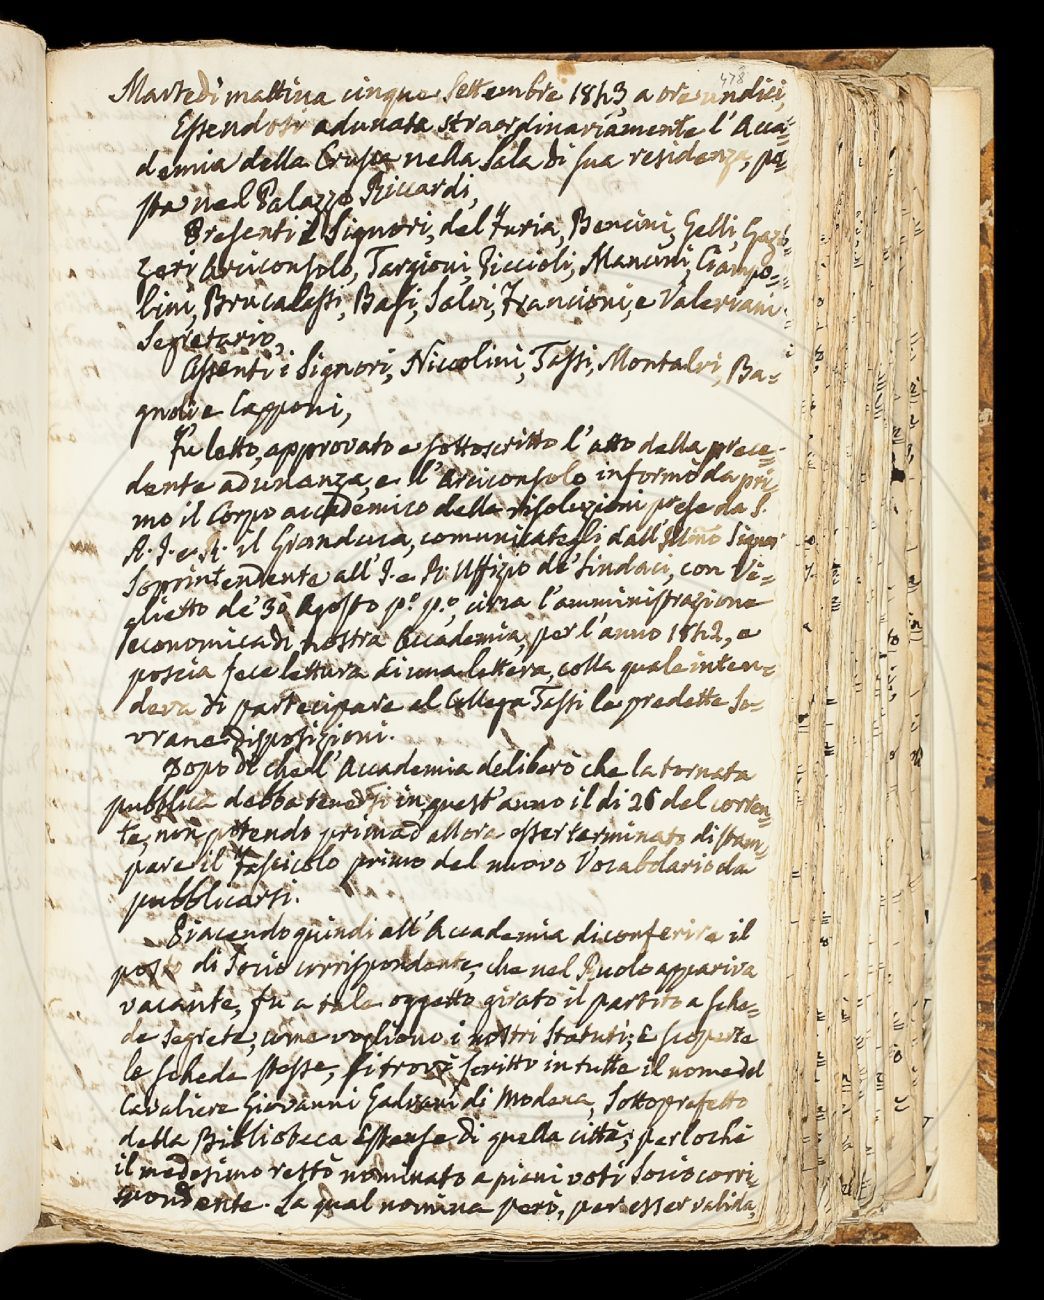 478
Martedì mattina cinque Settembre 1843, a ore undici,
Essendosi adunata straordinariamente l'Acca=
demia della Crusca nella Sala di sua residenza, po=
sta nel Palazzo Riccardi,
Presenti i Signori, del Furia, Bencini, Gelli, Gaz=
zeri Arciconsolo, Targioni, Piccioli, Mancini, Ciampo=
lini, Brucalassi, Basi, Salvi, Francioni, e Valeriani
Segretario,
Assenti i Signori, Niccolini, Tassi, Montalvi, Ba=
gnoli e Capponi,
Fu letto, approvato e sottoscritto l'atto della prece=
dente adunanza, e l'Arciconsolo informò da pri
mo il Corpo accademico delle risoluzioni prese da S.
A. I. e R. il Granduca, comunicategli dall'Illmo Signor
Soprintendente all'I. e R. Uffizio de' Sindaci, con Vi=
glietto de' 30 Agosto p.º p.º, circa l'amministrazione
economica di nostra Accademia, per l'anno 1842, e
poscia fece lettura di una lettera, colla quale inten=
deva di partecipare al Collega Tassi le predette So=
vrane disposizioni.
Dopo di che l'Accademia deliberò che la tornata
pubblica debba tenersi in quest'anno il dì 26 del corren=
te, non potendo prima d'allora esser terminato di stam=
pare il Fascicolo primo del nuovo Vocabolario da
pubblicarsi.
Piacendo quindi all'Accademia di conferire il
posto di Socio corrispondente, che nel Ruolo appariva
vacante, fu a tale oggetto girato il partito a sche=
de segrete, come vogliono i nostri Statuti; E scoperte
le schede stesse, si trovò scritto in tutte il nome del
Cavaliere Giovanni Galvani di Modena, Sottoprefetto
della Biblioteca Estense di quella città; perlochè
il medesimo restò nominato a pieni voti Socio corri=
spondente. La qual nomina però, per esser valida,